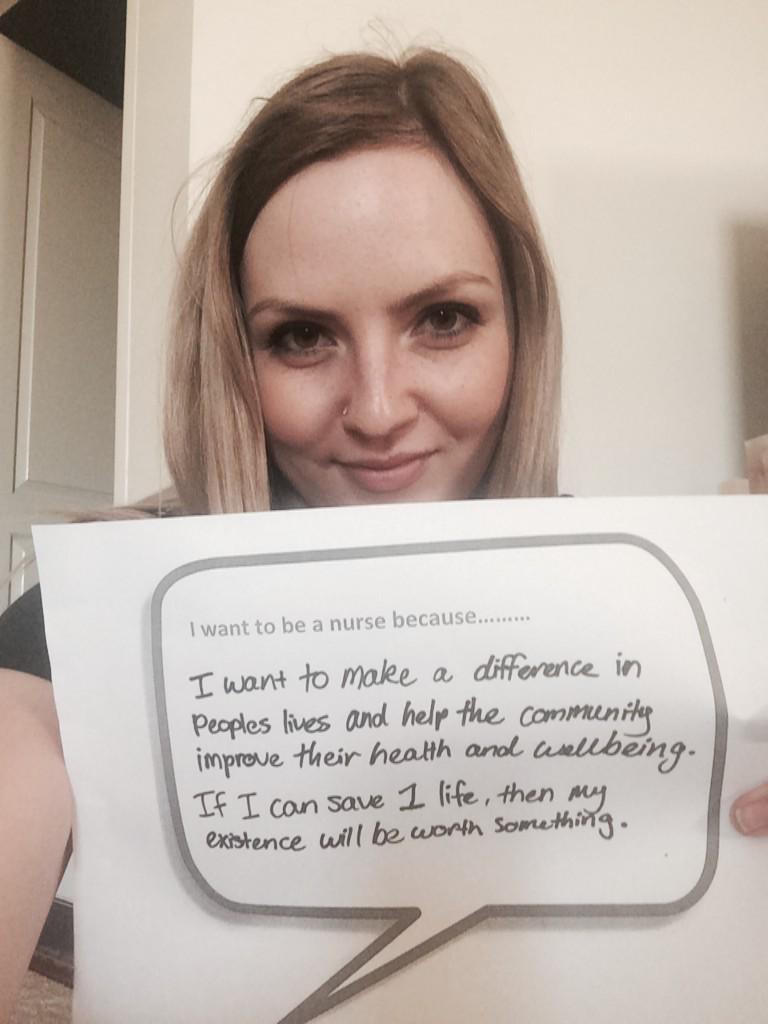 I want to be a nurse because.........
I want to make a difference in
Peoples lives and help the community
improve their health and wellbeing.
If I can save 1 life, then my
existence will be worth something.